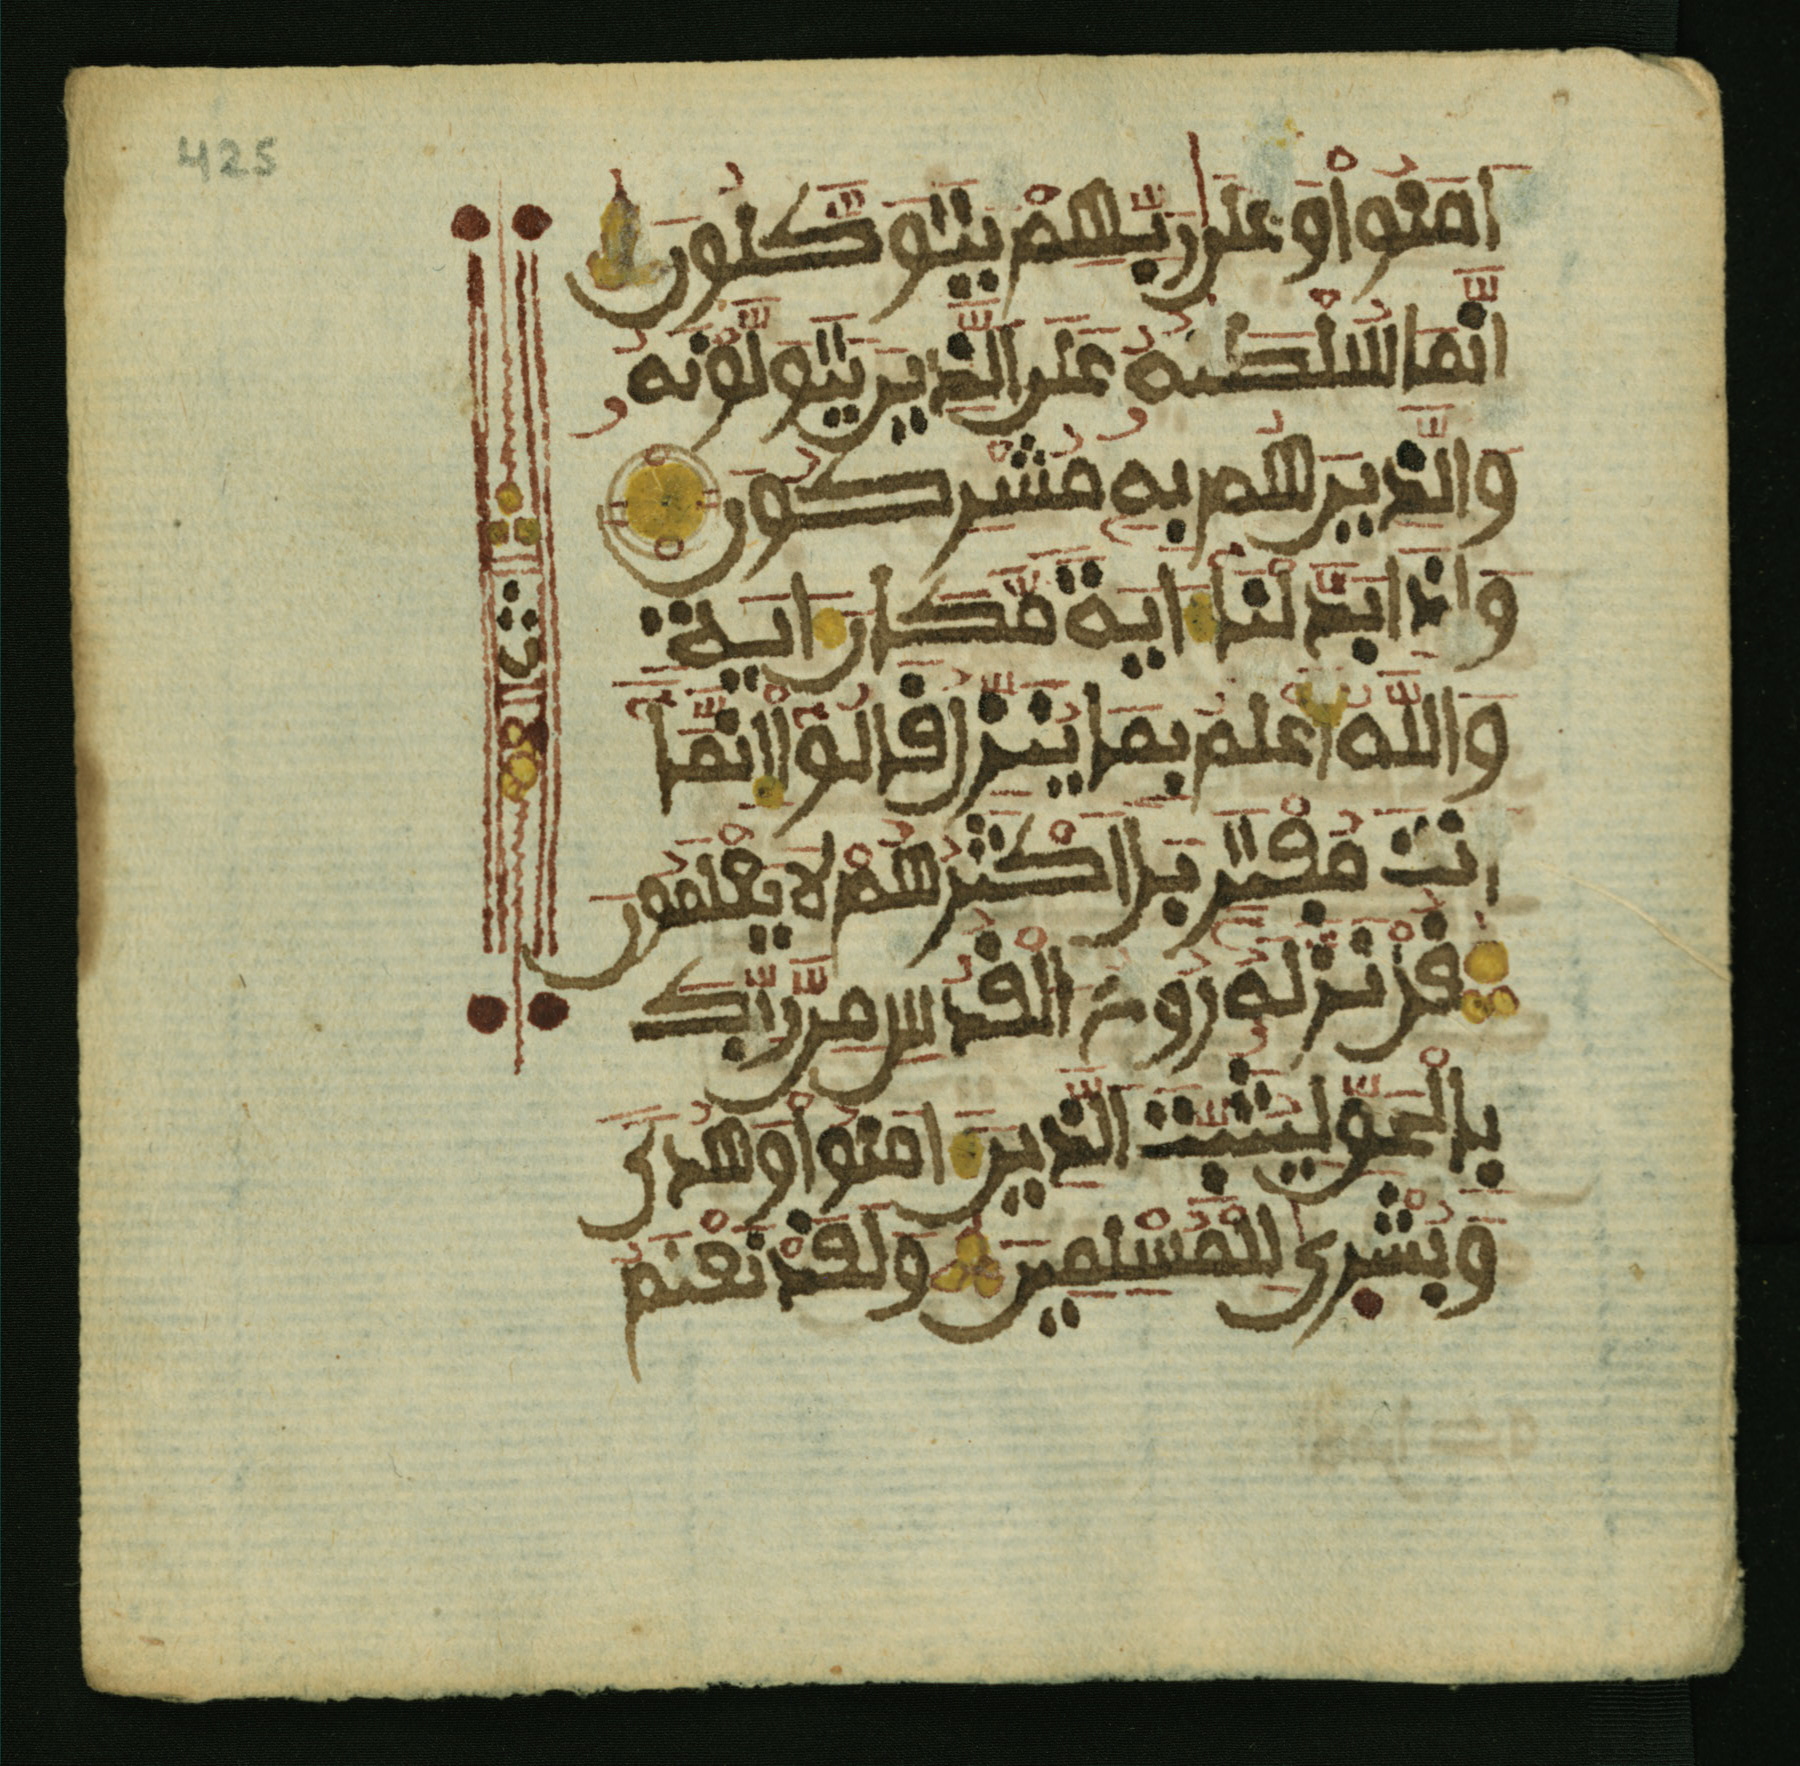 425
ءَامَنُواْ وَعَلَىٰ رَبِّهِمْ يَتَوَكَّلُونَ
إِنَّمَا سُلْطَٰنُهُۥ عَلَى الَّذِينَ يَتَوَلَّوْنَهُۥ
وَالَّذِينَ هُم بِهِۦ مُشْرِكُونَ
وَإِذَا بَدَّلْنَا ءَايَةً مَّكَانَ ءَايَةٍ
وَاللَّهُ أَعْلَمُ بِمَا يُنَزِّلُ قَالُواْ إِنَّمَا
أَنتَ مُفْتَرٍ بَلْ أَكْثَرُهُمْ لَا يَعْلَمُونَ
قُلْ نَزَّلَهُۥ رُوحُ الْقُدُسِ مِن رَّبِّكَ
بِالْحَقِّ لِيُثَبِّتَ الَّذِينَ ءَامَنُواْ وَهُدًى
وَبُشْرَىٰ لِلْمُسْلِمِينَ وَلَقَدْ نَعْلَمُ